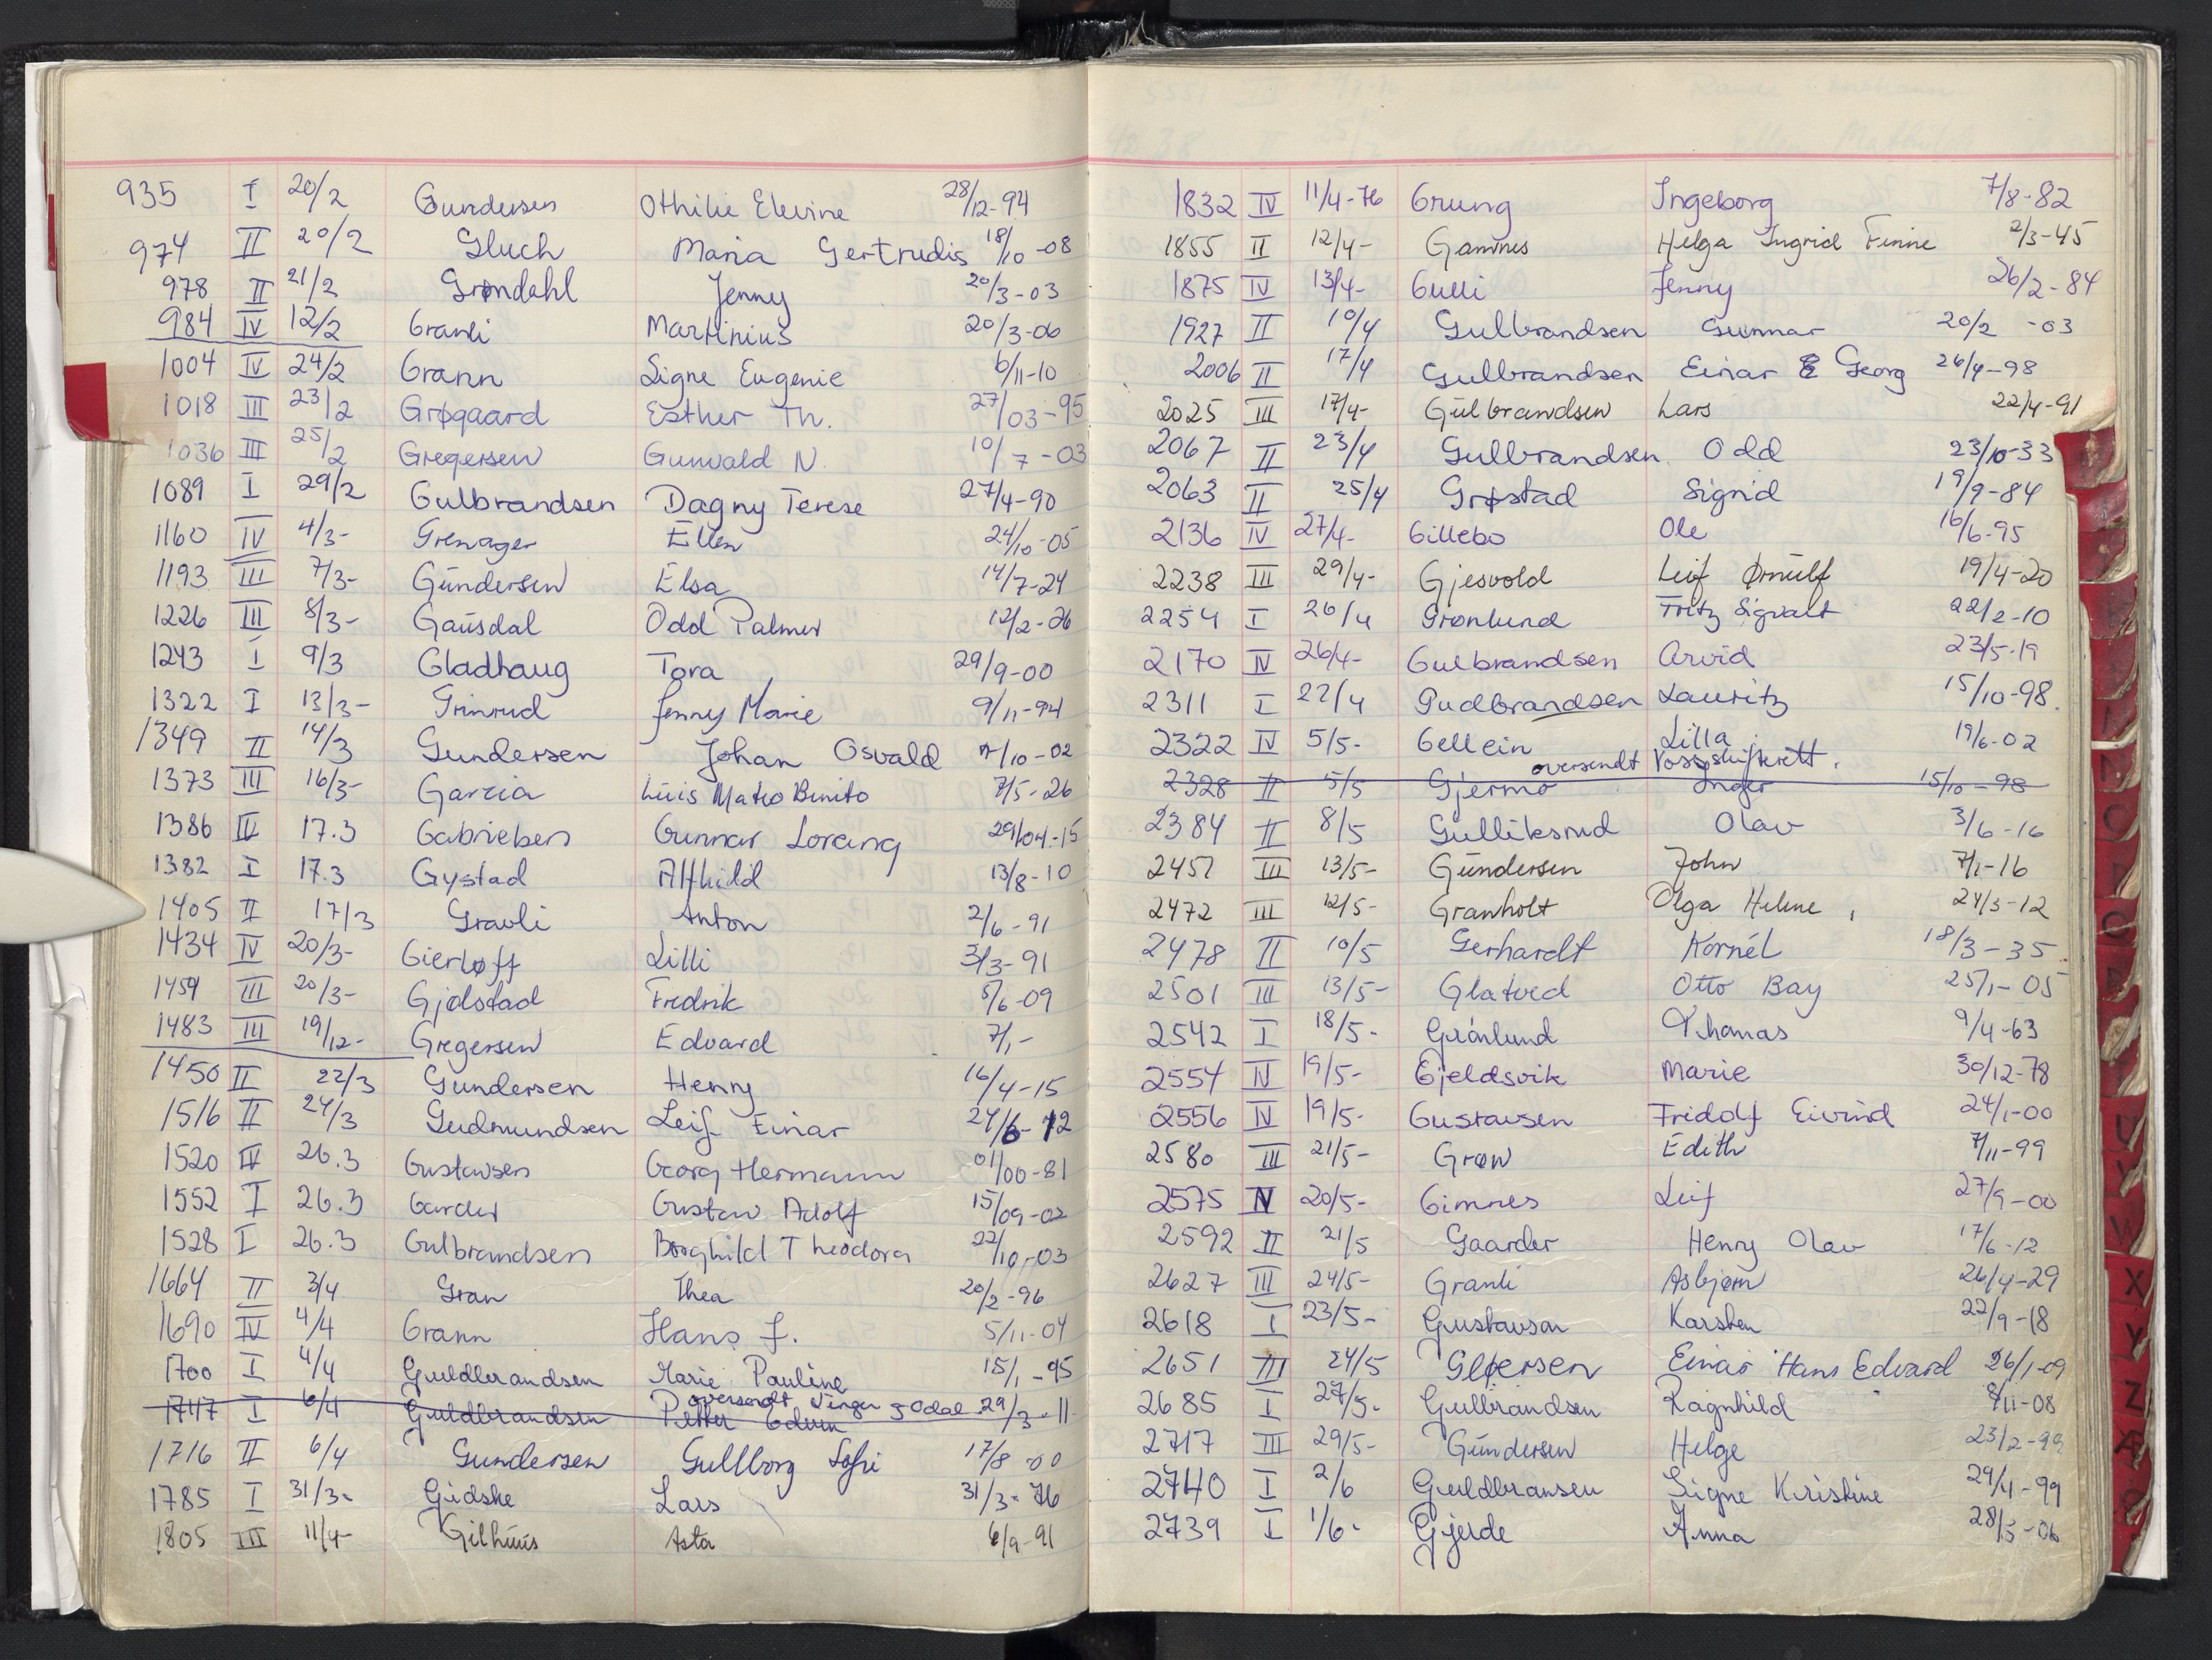 935 I 20/2 Gundersen Othilie Elevine 28/12-94
974 II 20/2 Gluch Maria Gertrudis 18/10-08
978 II 21/2 Grøndahl Jenny 20/3-03
984 IV 12/2 Granli Martinius 20/3-06
1004 IV 24/2 Grann Signe Eugenie 6/11-10
1018 III 23/2 Grøgaard Esther Th. 27/03-95
1036 III 25/2 Gregersen Gunvald N. 10/7-03
1089 I 29/2 Gulbrandsen Dagny Terese 27/4-90
1160 IV 4/3- Grenager Ellen 24/10-05
1193 III 7/3- Gundersen Elsa 14/7-24
1226 III 8/3- Gausdal Odd Palmer 12/2-26
1243 I 9/3 Gladhaug Tora 29/9-00
1322 I 13/3- Grinrud Jenny Marie 9/11-94
1349 II 14/3 Gundersen Johan Osvald 7/10-02
1373 III 16/3- Garcia Luis Mateo Benito 7/5-26
1386 IV 17.3 Gabrielsen Gunnar Lorang 29/04-15
1382 I 17.3 Gystad Alfhild 13/8-10
1405 II 17/3 Gravli Anton 2/6-91
1434 IV 20/3- Gierløff Lilli 3/3-91
1459 III 20/3- Gjølstad Fredrik 5/6-09
1483 III 19/12- Gregersen Edvard 7/1-
1450 II 22/3 Gundersen Henry 16/4-15
1516 II 24/3 Gudmundsen Leif Einar 24/6-12
1520 IV 26.3 Gustavsen Georg Hermann 01/00-81
1552 I 26.3 Garder Gustav Adolf 15/09-02
1528 I 26.3 Gulbrandsen Borghild Theodora 22/10-03
1664 II 3/4 Gran Thea 20/2-96
1690 IV 4/4 Grann Hans J. 5/11-04
1700 I 4/4 Guldbrandsen Marie Pauline 15/1-95
oversendt Vinger
1747 I 6/4 Guldbrandsen Petter Edvin Odal 29/3-11
1716 II 6/4 Gundersen Gullborg Sofie 17/8-00
1785 I 31/3- Gidske Lars 31/3-76
1805 III 11/4- Gilhuus Asta 6/9-91
1832 IV 11/4-76 Grung Ingeborg 7/8-82
1855 II 12/4- Gamnes Helga Ingrid Finne 2/3-45
1875 IV 13/4- Gulli Jenny 26/2-84
1927 II 10/4 Gulbrandsen Gunnar 20/2-03
2006 II 17/4 Gulbrandsen Einar Georg 26/4-98
2025 III 17/4- Gulbrandsen Lars 22/4-91
2067 II 23/4 Gulbrandsen Odd 23/10-33
2063 II 25/4 Grøstad Sigrid 19/9-84
2136 IV 27/4- Gillebo Ole 16/6-95
2238 III 29/4- Gjesvold Leif Ørnulf 19/4-20
2254 I 26/4 Grønlund Fritz Sigvalt 22/2-10
2170 IV 26/4- Gulbrandsen Arvid 23/5-19
2311 I 22/4 Gudbrandsen Lauritz 15/10-98.
2322 IV 5/5- Gellein Lilla 19/6-02
oversendt Voss skifterett.
2328 II 5/5 Gjermo Inger 15/10-98
2384 II 8/5 Gulliksrud Olav 3/6-16
2451 III 13/5- Gundersen John 7/1-16
2472 III 12/5- Granholt Olga Helene 24/3-12
2478 II 10/5 Gerhardt Kornél 18/3-35
2501 III 13/5- Glatved Otto Bay 25/1-05
2542 I 18/5- Grønlund Thomas 9/4-63
2554 IV 19/5- Gjeldsvik Marie 30/12-78
2556 IV 19/5- Gustavsen Fridolf Eivind 24/1-00
2580 III 21/5- Grøn Edith 7/11-99
2575 IV 20/5- Gimnes Leif 27/9-00
2592 II 21/5 Gaarder Henry Olav 17/6-12
2627 III 24/5- Granli Asbjørn 26/4-29
2618 I 23/5- Gustavson Karsten 22/9-18
2651 III 24/5 Gløersen Einar Hans Edvard 26/1-09
2685 I 27/5- Gulbrandsen Ragnhild 8/11-08
2717 III 29/5- Gundersen Helge 23/2-99
2740 I 2/6 Guldbransen Signe Kristine 29/4-99
2739 I 1/6- Gjerde Anna 28/5-06
X
Y
Z
Æ